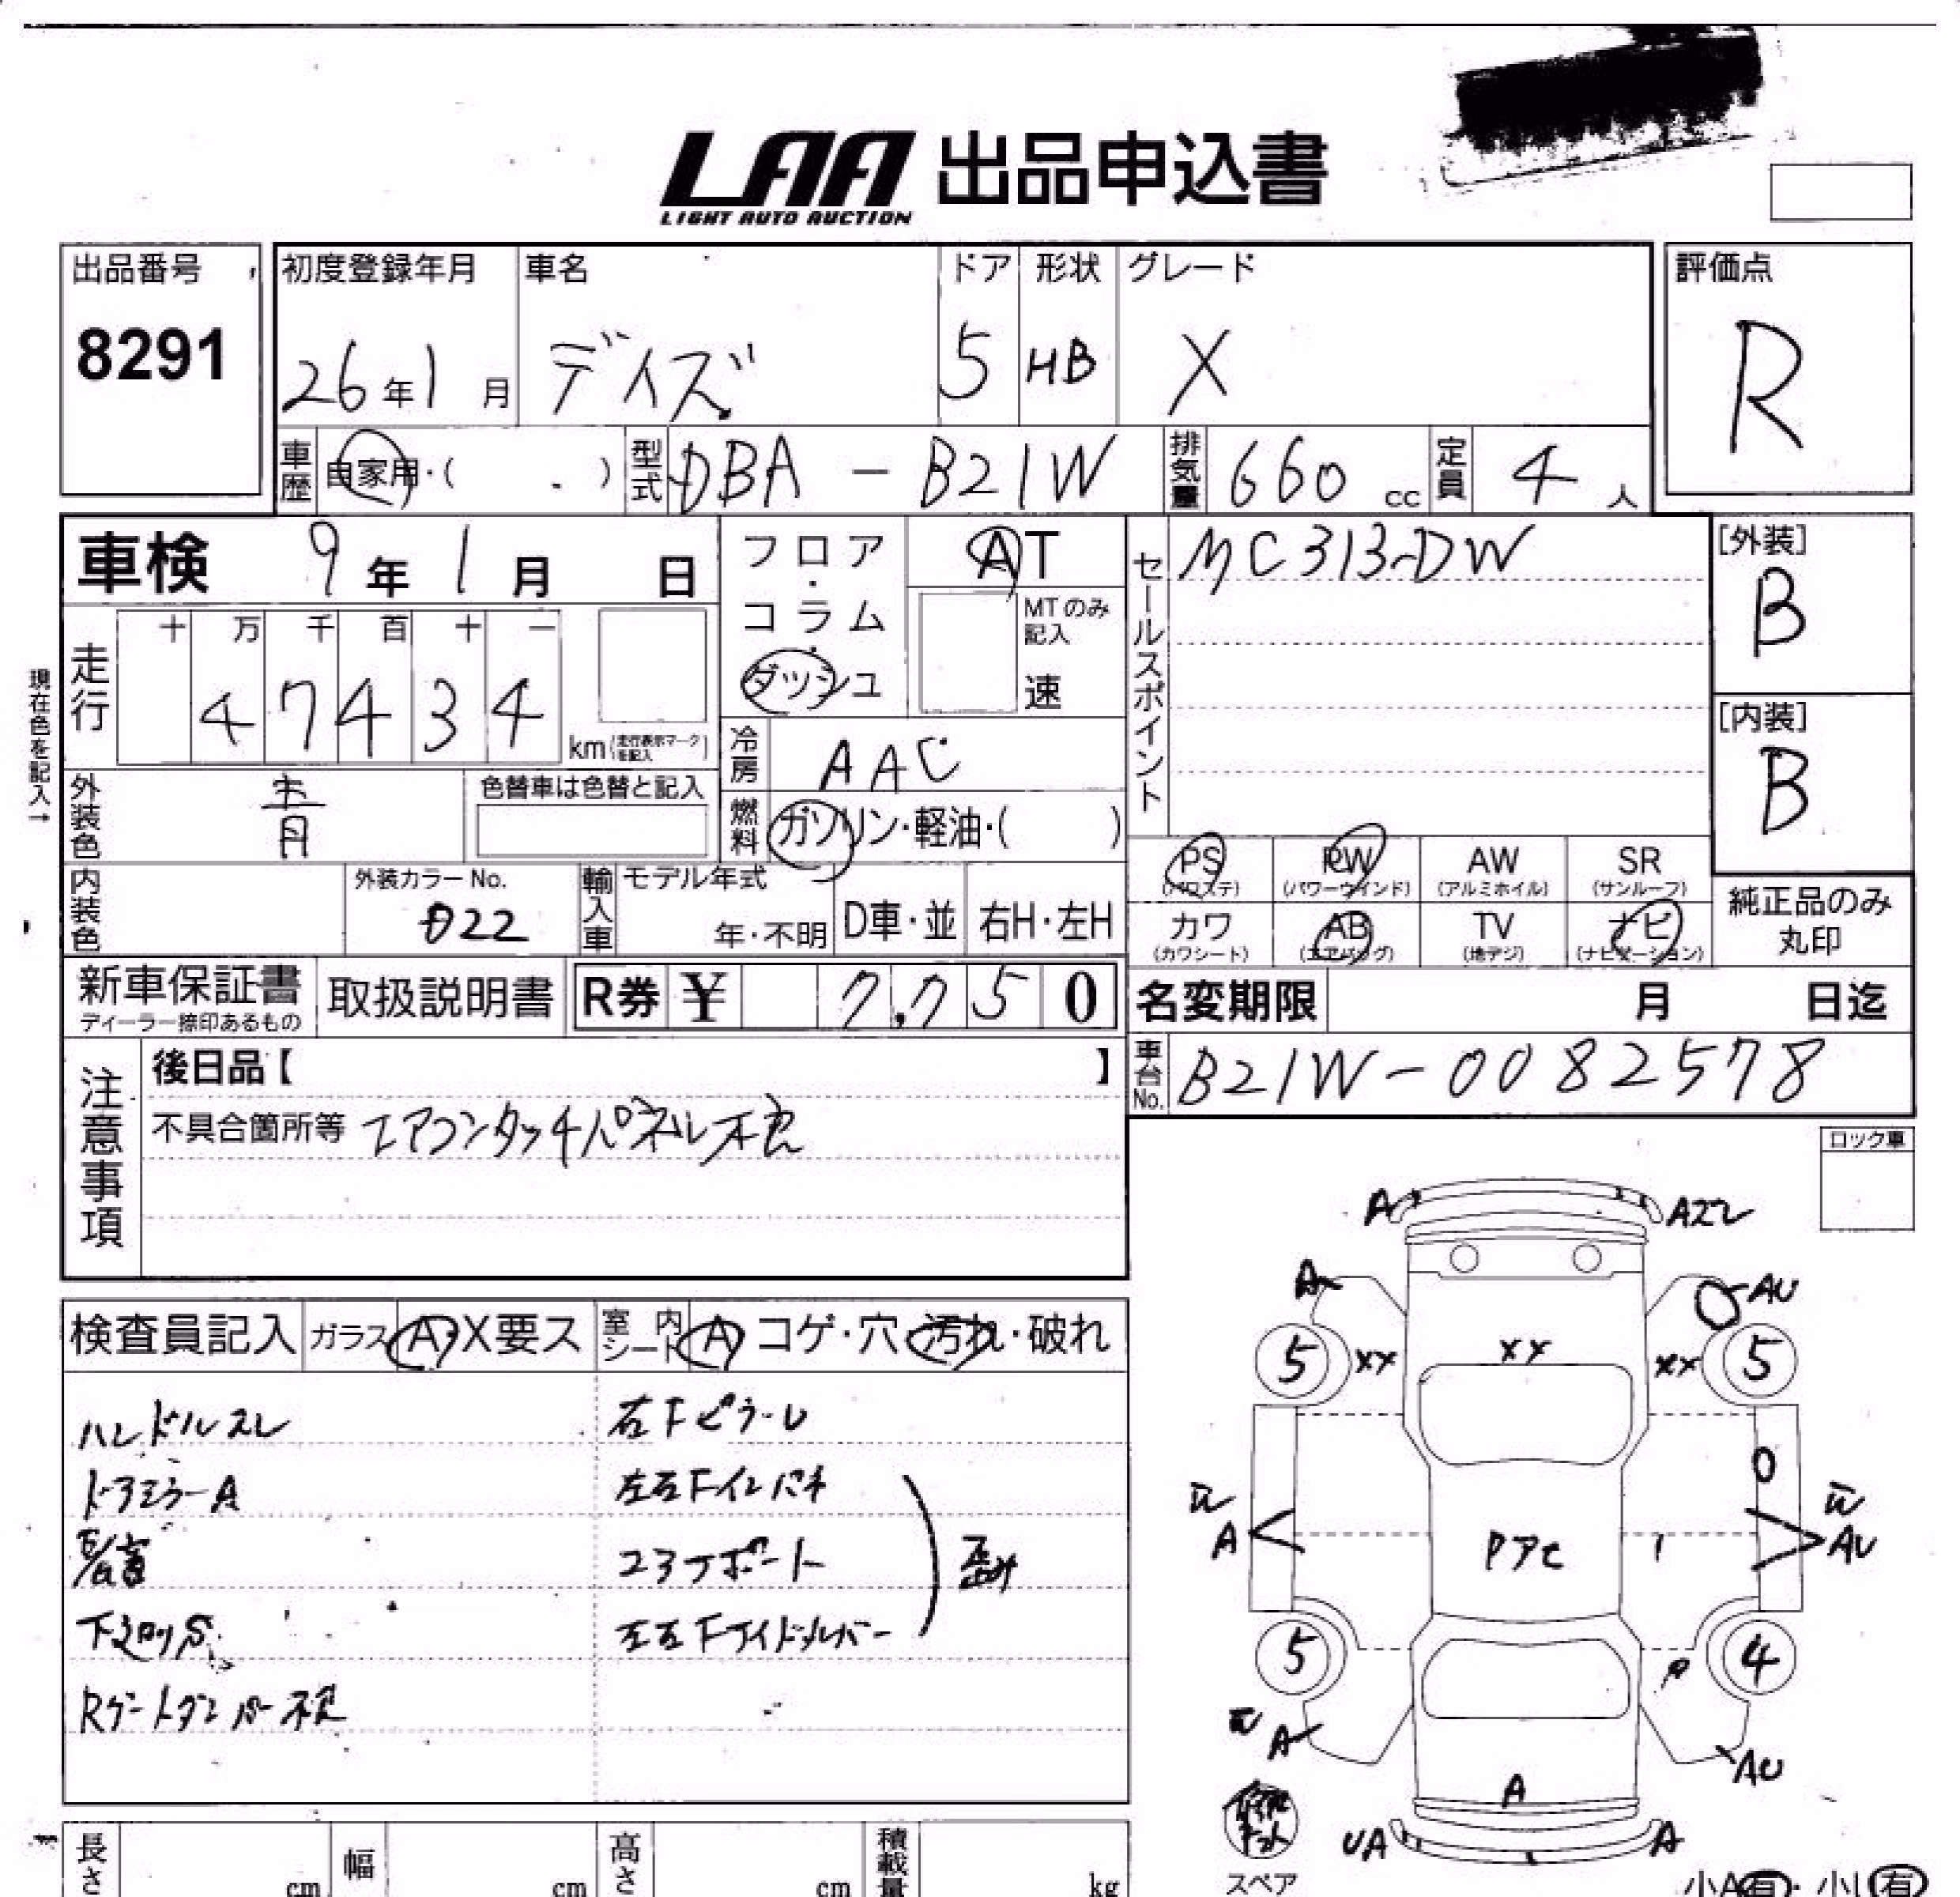 LAA 出品申込書
LIGHT AUTO AUCTION
出品番号 初度登録年月 車名 ドア 形状 グレード 評価点
8291 26年1月 デイズ 5 HB X R
車歴 自家用・( ) 型式 DBA - B21W 排気量 660 cc 定員 4 人
車検 9年1月 日 フロア・コラム・ダッシュ AT セールスポイント MC313-DW [外装] B
MTのみ記入 速
現在色を記入→
走行 十 万 千 百 十 一
4 7 4 3 4 km (走行表示マークを記入)
冷房 AAC [内装] B
外装色 青 色替車は色替と記入 燃料 ガソリン・軽油・( )
PS (パワステ) PW (パワーウインド) AW (アルミホイル) SR (サンルーフ)
内装色 外装カラーNo. D22 輸入車 モデル年式 年・不明 D車・並 右H・左H
カワ (カワシート) AB (エアバッグ) TV (地デジ) ナビ (ナビゲーション) 純正品のみ丸印
新車保証書 ディーラー捺印あるもの 取扱説明書 R券 ¥ 7,750 名変期限 月 日迄
車台No. B21W-0082578
注意事項 後日品【 】
不具合箇所等 エアコンタッチパネル不良
ロック車
検査員記入 ガラス A・X要ス 室内シート A コゲ・穴・汚れ・破れ
ハンドルスレ 右Fピラーレ
ドアミラーA 左右Fインパネ
コアサポート 歪み
下廻りS 左右Fサイドメンバー
Rゲートダンパー不良
A Aズレ
A AU
5 XX XX XX 5
O
A Pアセ AU
5 P 4
A AU
A
UA A
スペア
長さ cm 幅 cm 高さ cm 積載量 kg
小A有・小U有